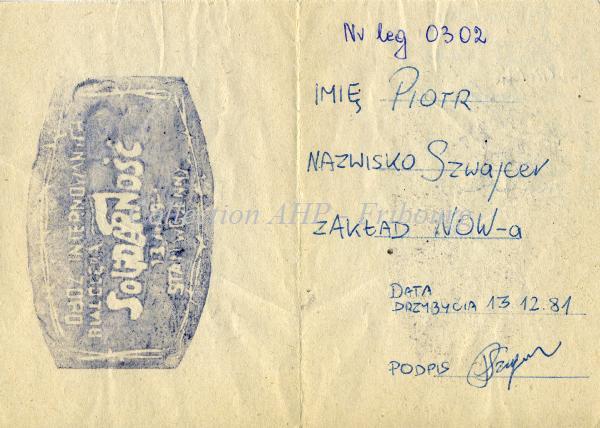 OBÓZ INTERNOWANIA
BIAŁOŁĘKA
SOLIDARNOŚĆ
13.XII.81
STAN WOJENNY
Nr leg 0302
IMIĘ PIOTR
NAZWISKO Szwajcer
ZAKŁAD NOW-a
DATA
PRZYBYCIA 13 12.81
PODPIS
Collection AHP - Fribourg